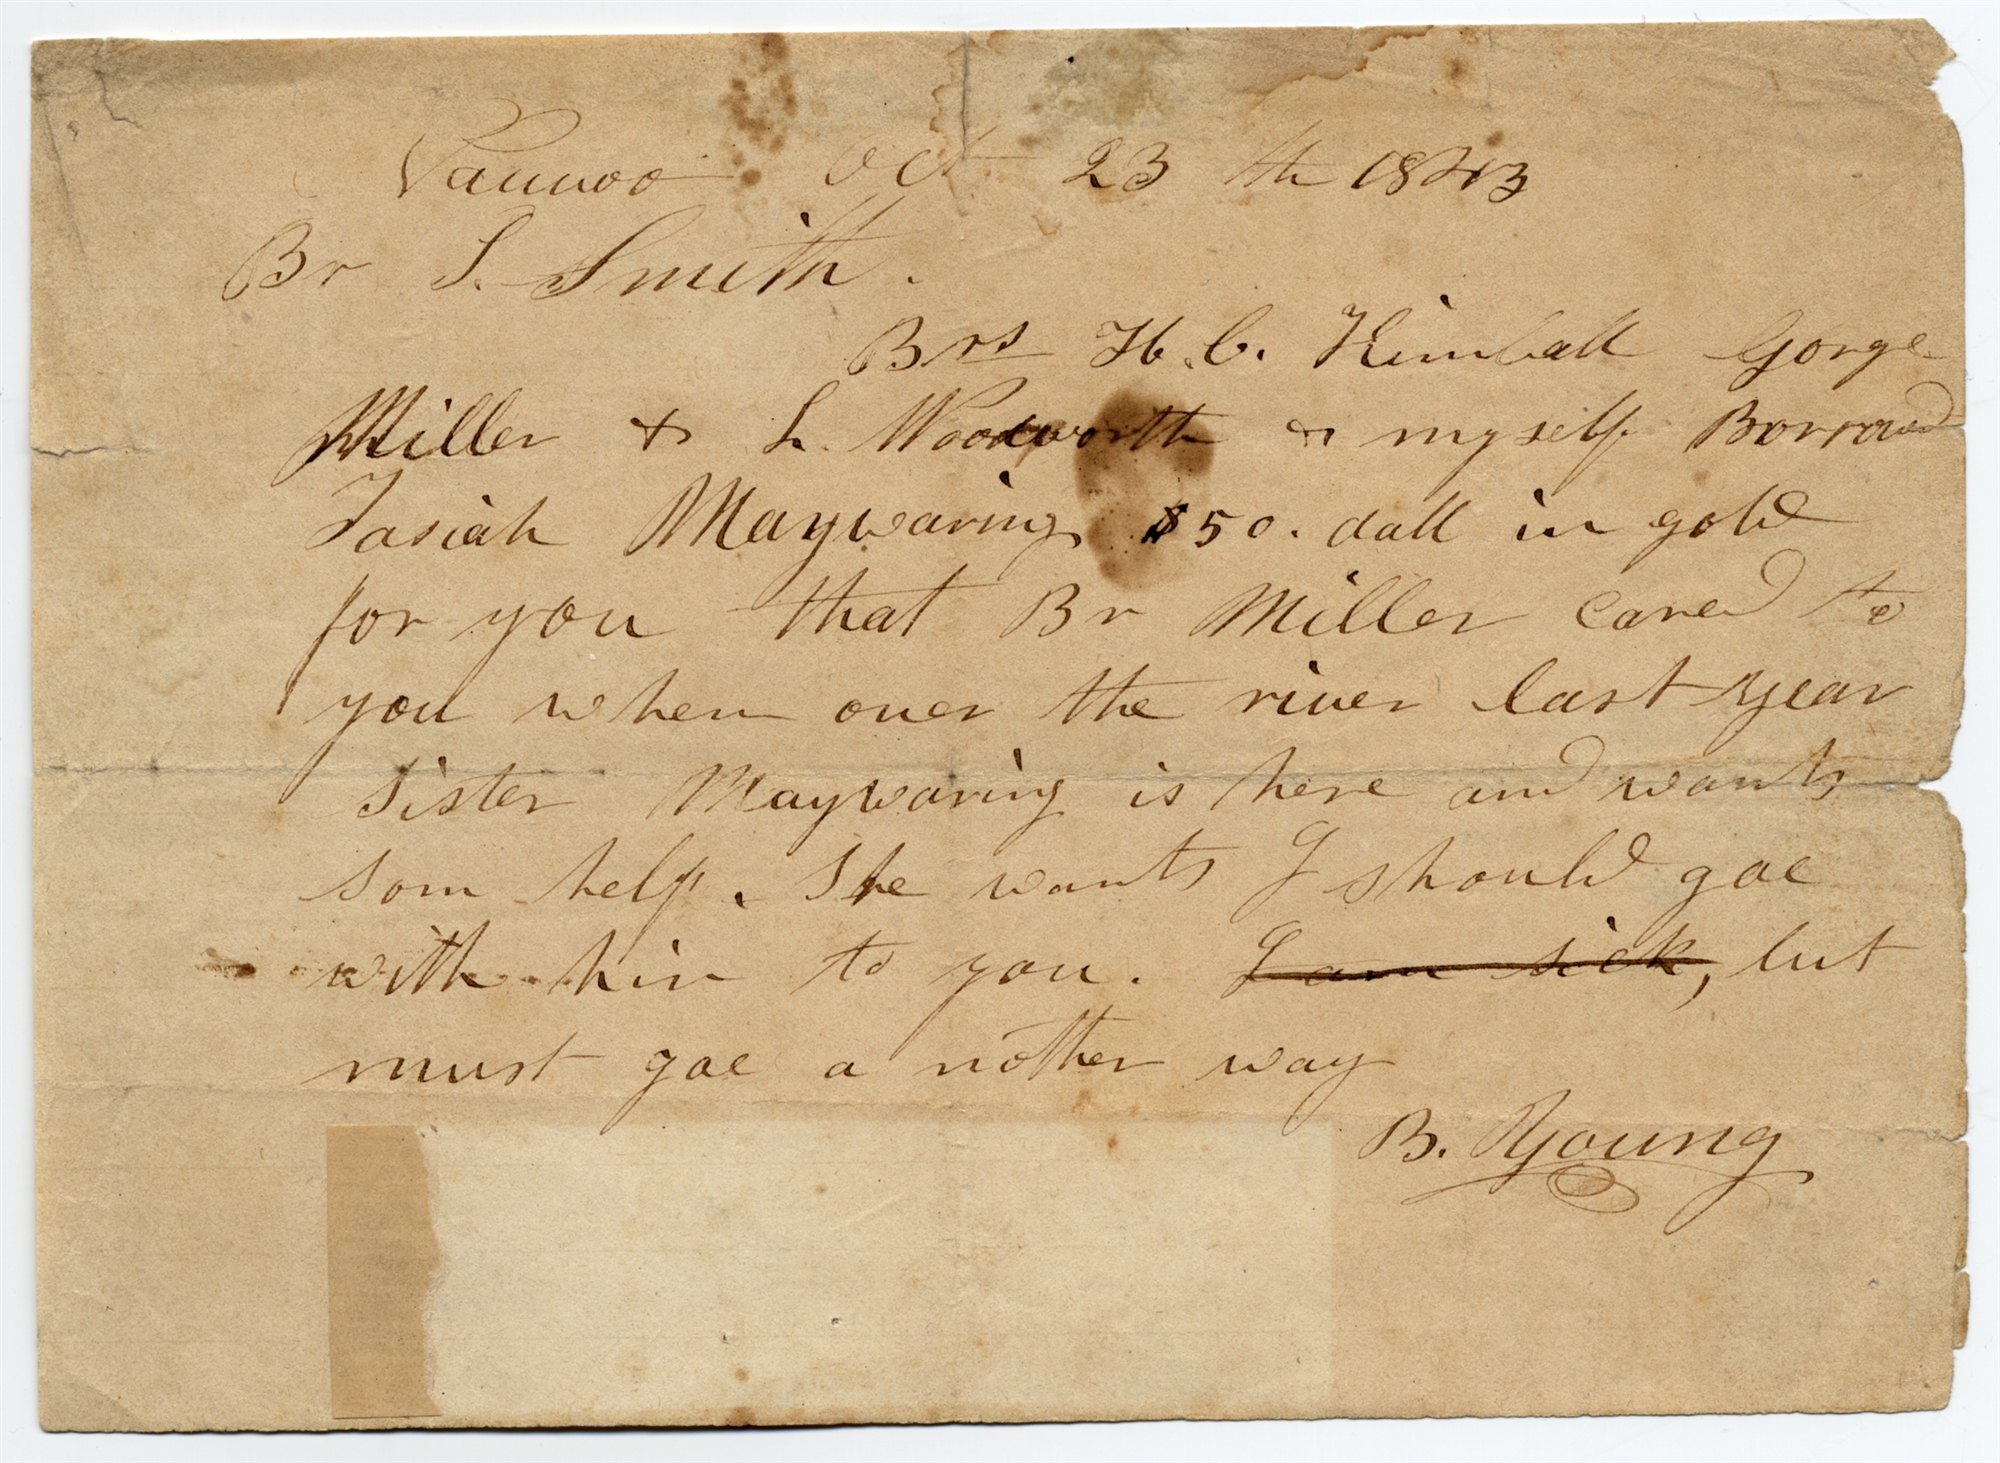 Nauvoo Oct 23 th 1843
Br J. Smith.
Brs H. C. Kimball Gorge
Miller & L. Woodworth & myself Borrowd
Josiah Maywaring $50. doll in gold
for you that Br Miller cared to
you when over the river last year
Sister Maywaring is here and wants
som help. She wants I should goe
with hir to you. I am sick, but
must goe a nother way
B. Young